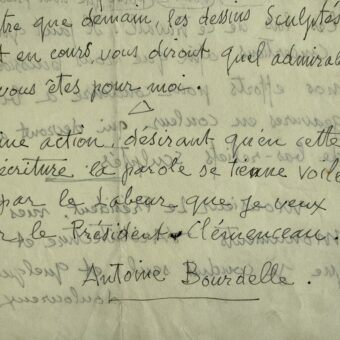 tre que demain, les dessins sculptés
t en cours, vous diront quel admirab
vous êtes pour moi.
ine action, désirant qu'en cette
écriture la parole se tienne voilé
par le Labeur que je veux
r le Président Clémenceau.
Antoine Bourdelle.